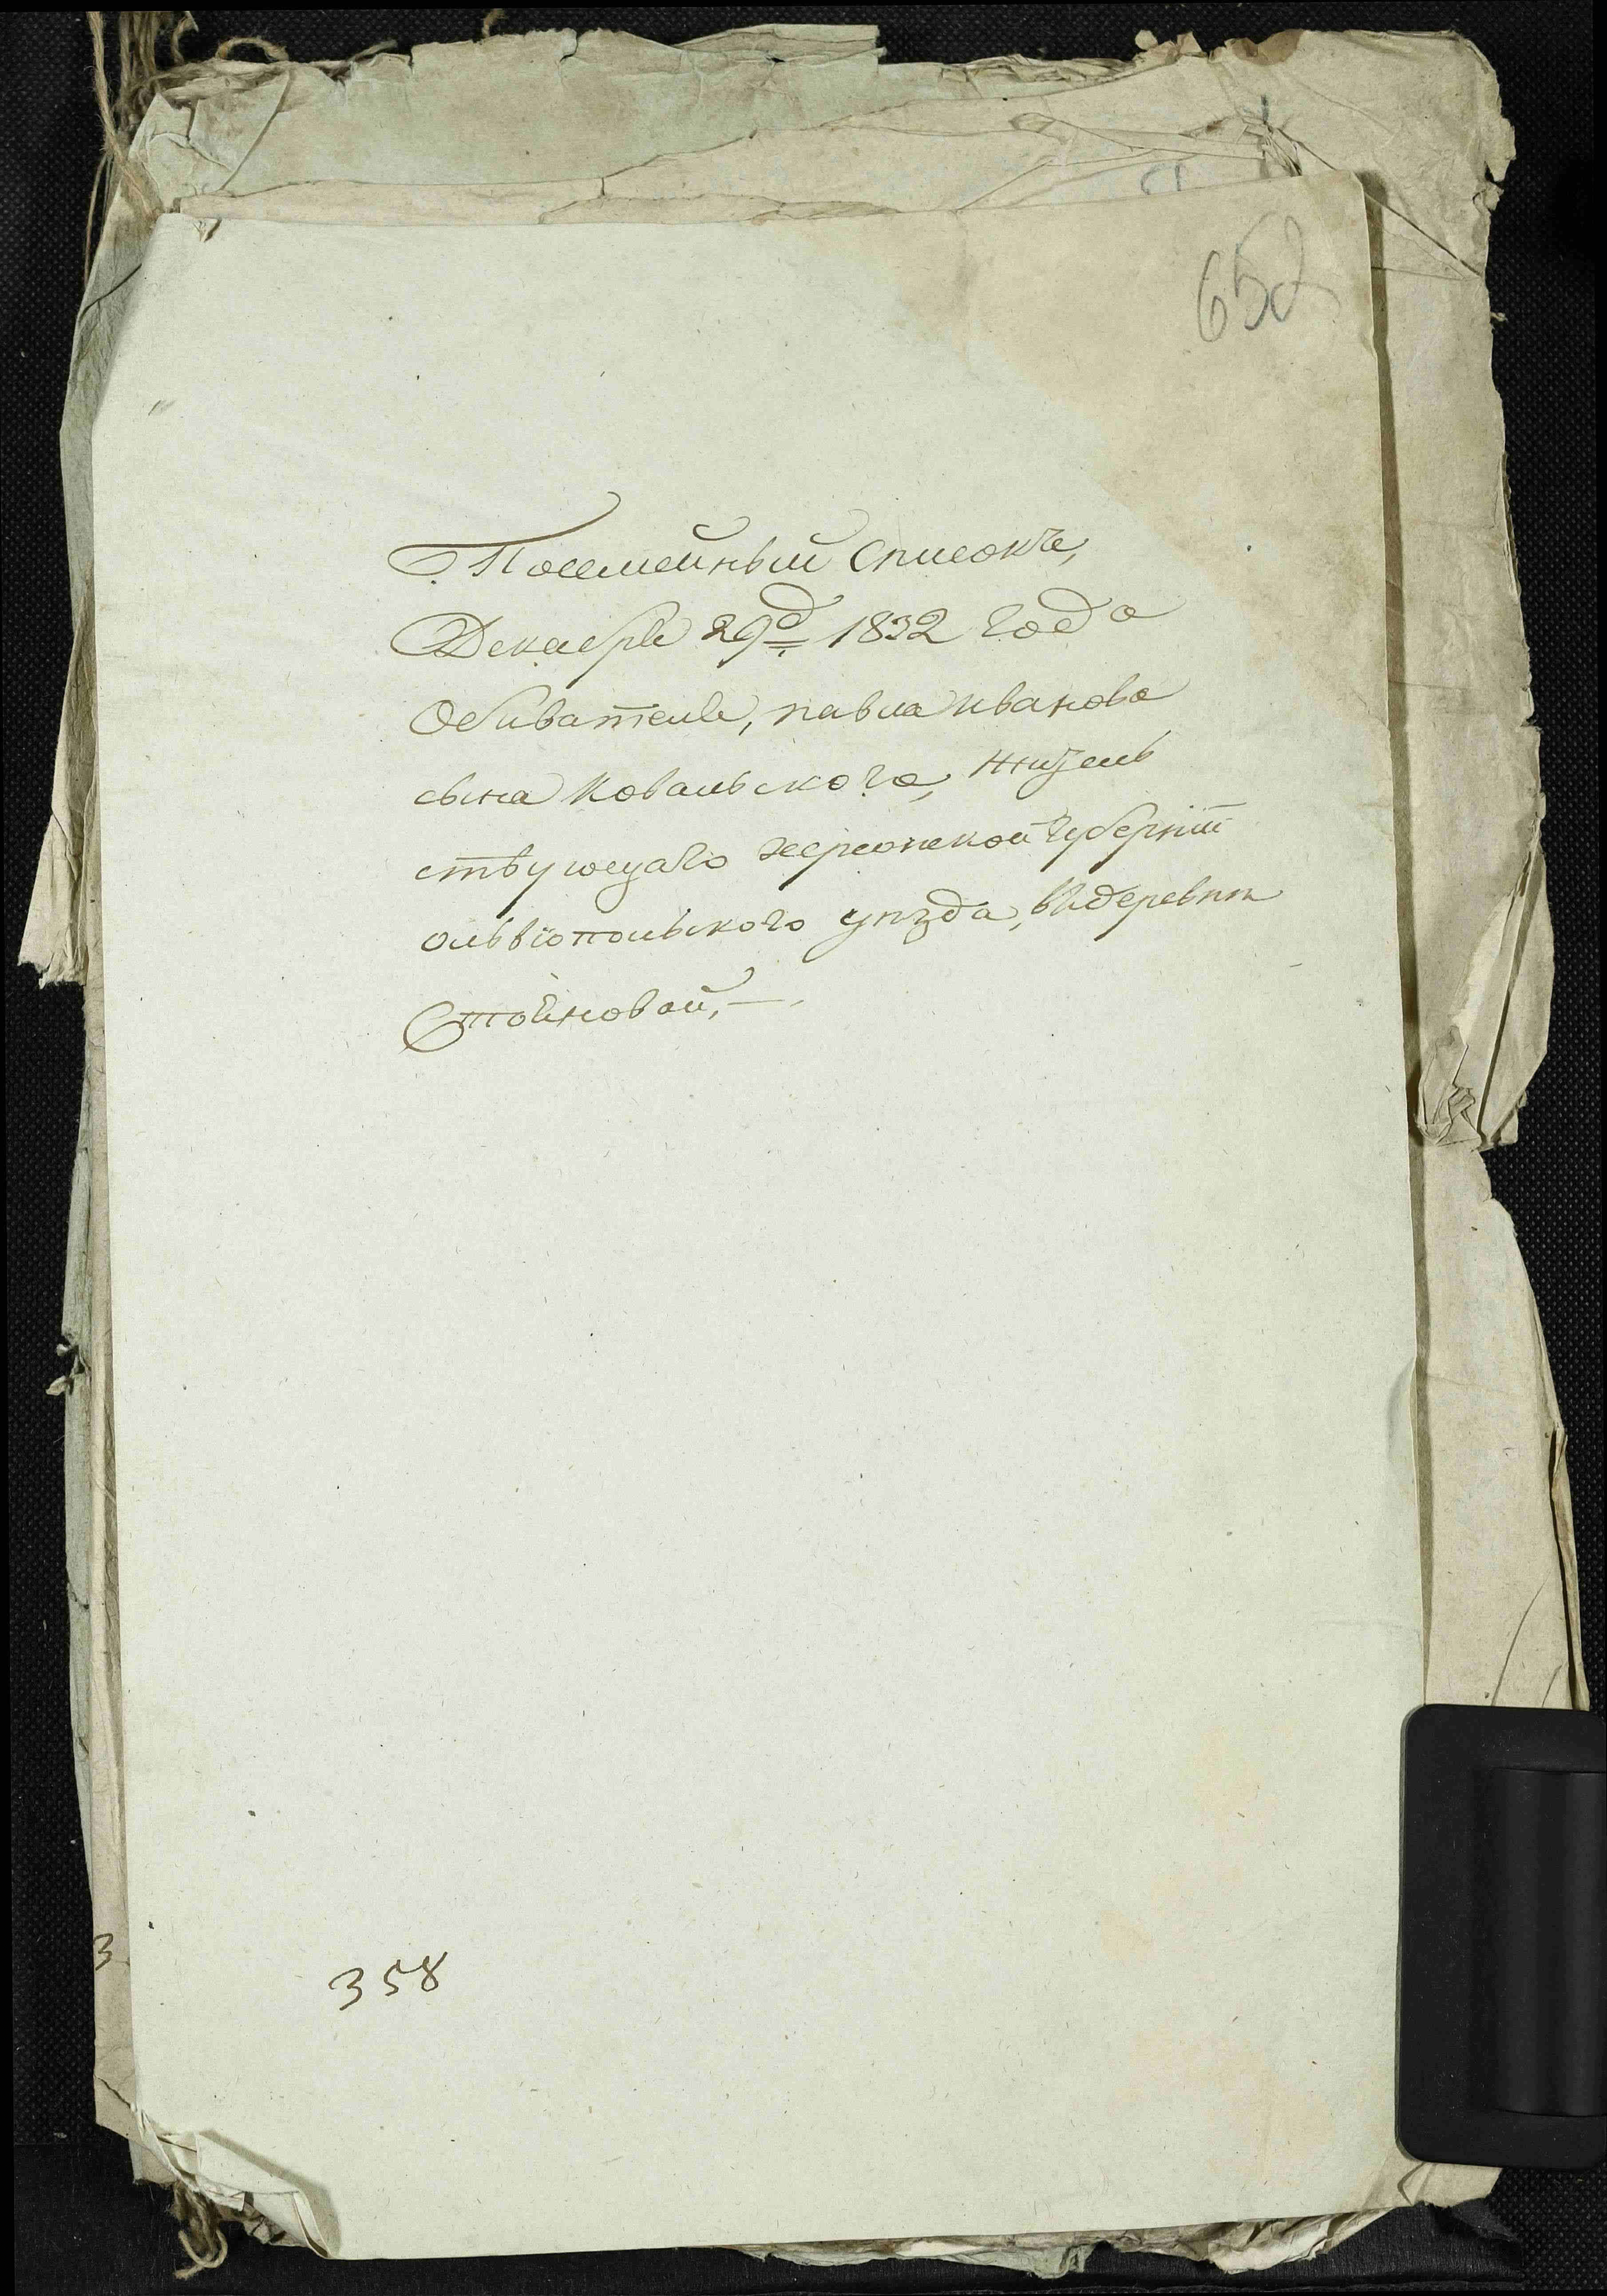 652
Посемейный Списокъ,
Декабря 29д 1832 года
Обивателя, павла иванова
сына Ковальского, жизель
ствующаго херсонской губерніи
ольвіопольского уѣзда, въ деревнѣ
Стойновой, —
3
358